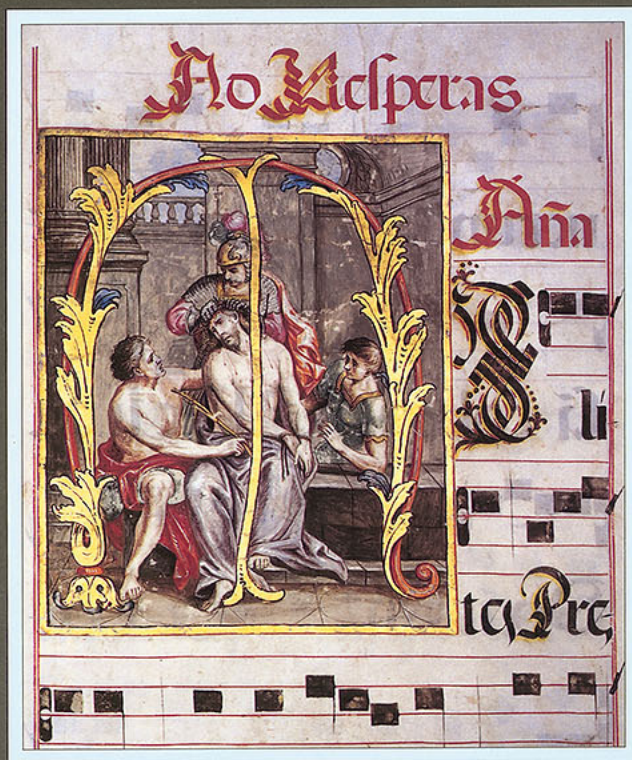 Ad Vesperas
Aña
MIli
tes Pre